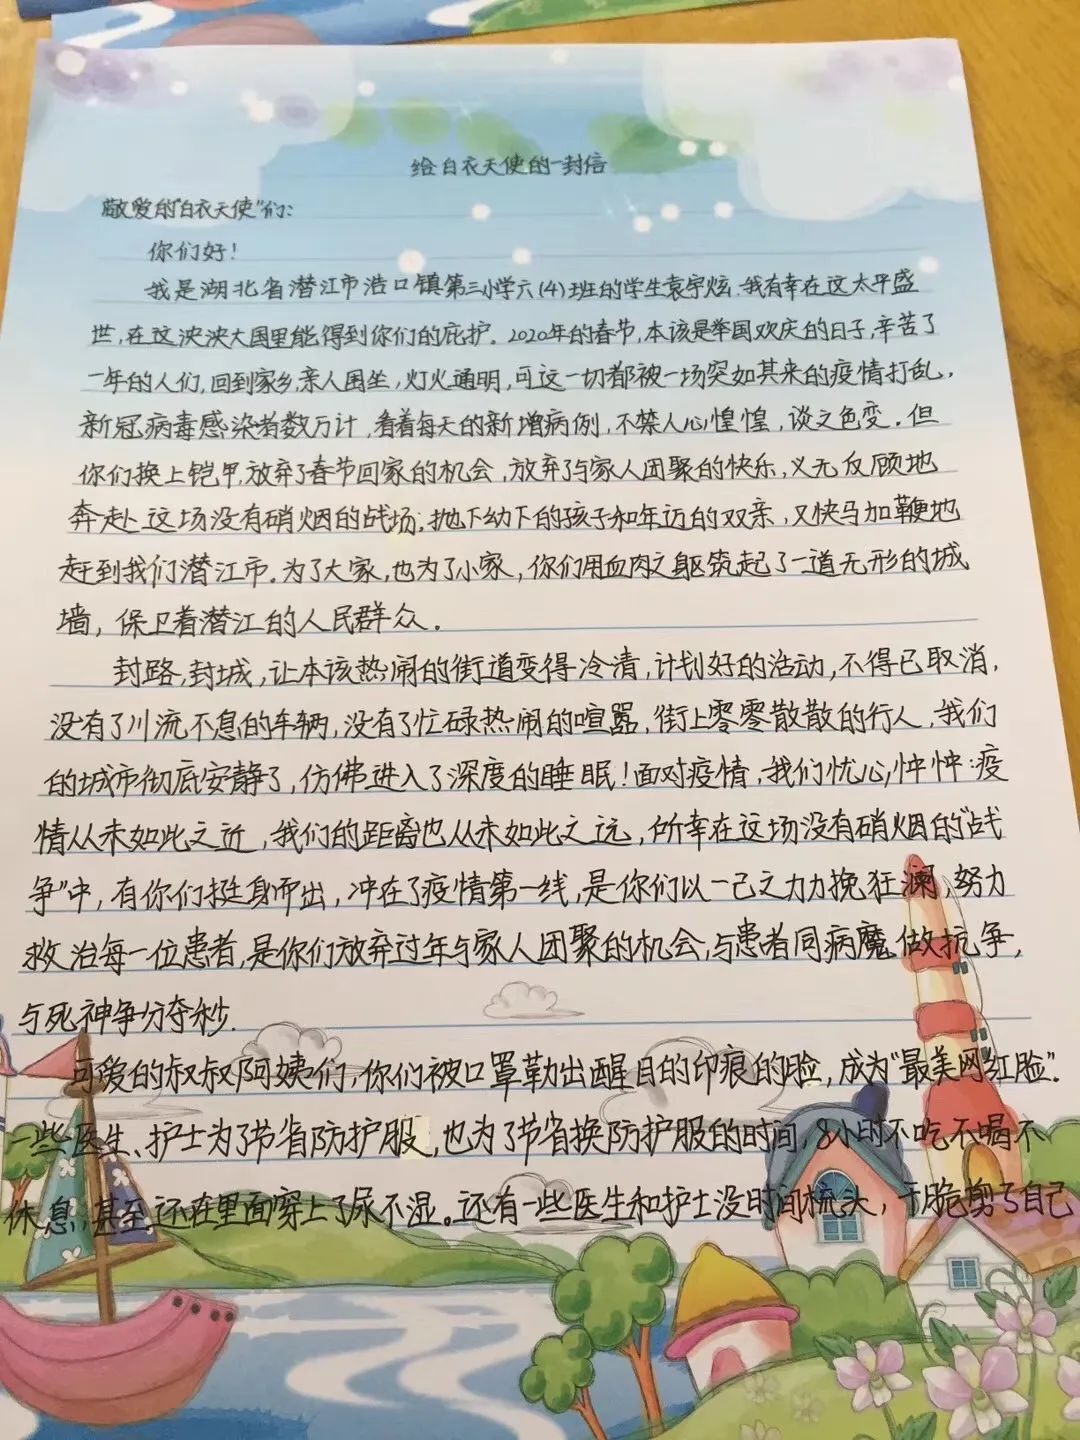 给白衣天使的一封信
敬爱的"白衣天使"们：
你们好！
我是湖北省潜江市浩口镇第三小学六(4)班的学生袁宇炫.我有幸在这太平盛
世,在这泱泱大国里能得到你们的庇护。2020年的春节,本该是举国欢庆的日子,辛苦了
一年的人们,回到家乡,亲人围坐,灯火通明,可这一切都被一场突如其来的疫情打乱,
新冠病毒感染者数万计,看着每天的新增病例,不禁人心惶惶,谈之色变.但
你们换上铠甲,放弃了春节回家的机会,放弃了与家人团聚的快乐,义无反顾地
奔赴这场没有硝烟的战场;抛下幼下的孩子和年迈的双亲,又快马加鞭地
赶到我们潜江市.为了大家,也为了小家,你们用血肉之躯筑起了一道无形的城
墙,保卫着潜江的人民群众。
封路,封城,让本该热闹的街道变得冷清,计划好的活动,不得已取消,
没有了川流不息的车辆,没有了忙碌热闹的喧嚣,街上零零散散的行人,我们
的城市彻底安静了,仿佛进入了深度的睡眠!面对疫情,我们忧心忡忡:疫
情从未如此之近,我们的距离也从未如此之远,所幸在这场没有硝烟的"战
争"中,有你们挺身而出,冲在了疫情第一线,是你们以一己之力力挽狂澜,努力
救治每一位患者,是你们放弃过年与家人团聚的机会,与患者同病魔做抗争,
与死神争分夺秒.
可爱的叔叔阿姨们,你们被口罩勒出醒目的印痕的脸,成为"最美网红脸".
一些医生、护士为了节省防护服,也为了节省换防护服的时间,8小时不吃不喝不
休息,甚至还在里面穿上了尿不湿。还有一些医生和护士没时间梳头,干脆剪了自己